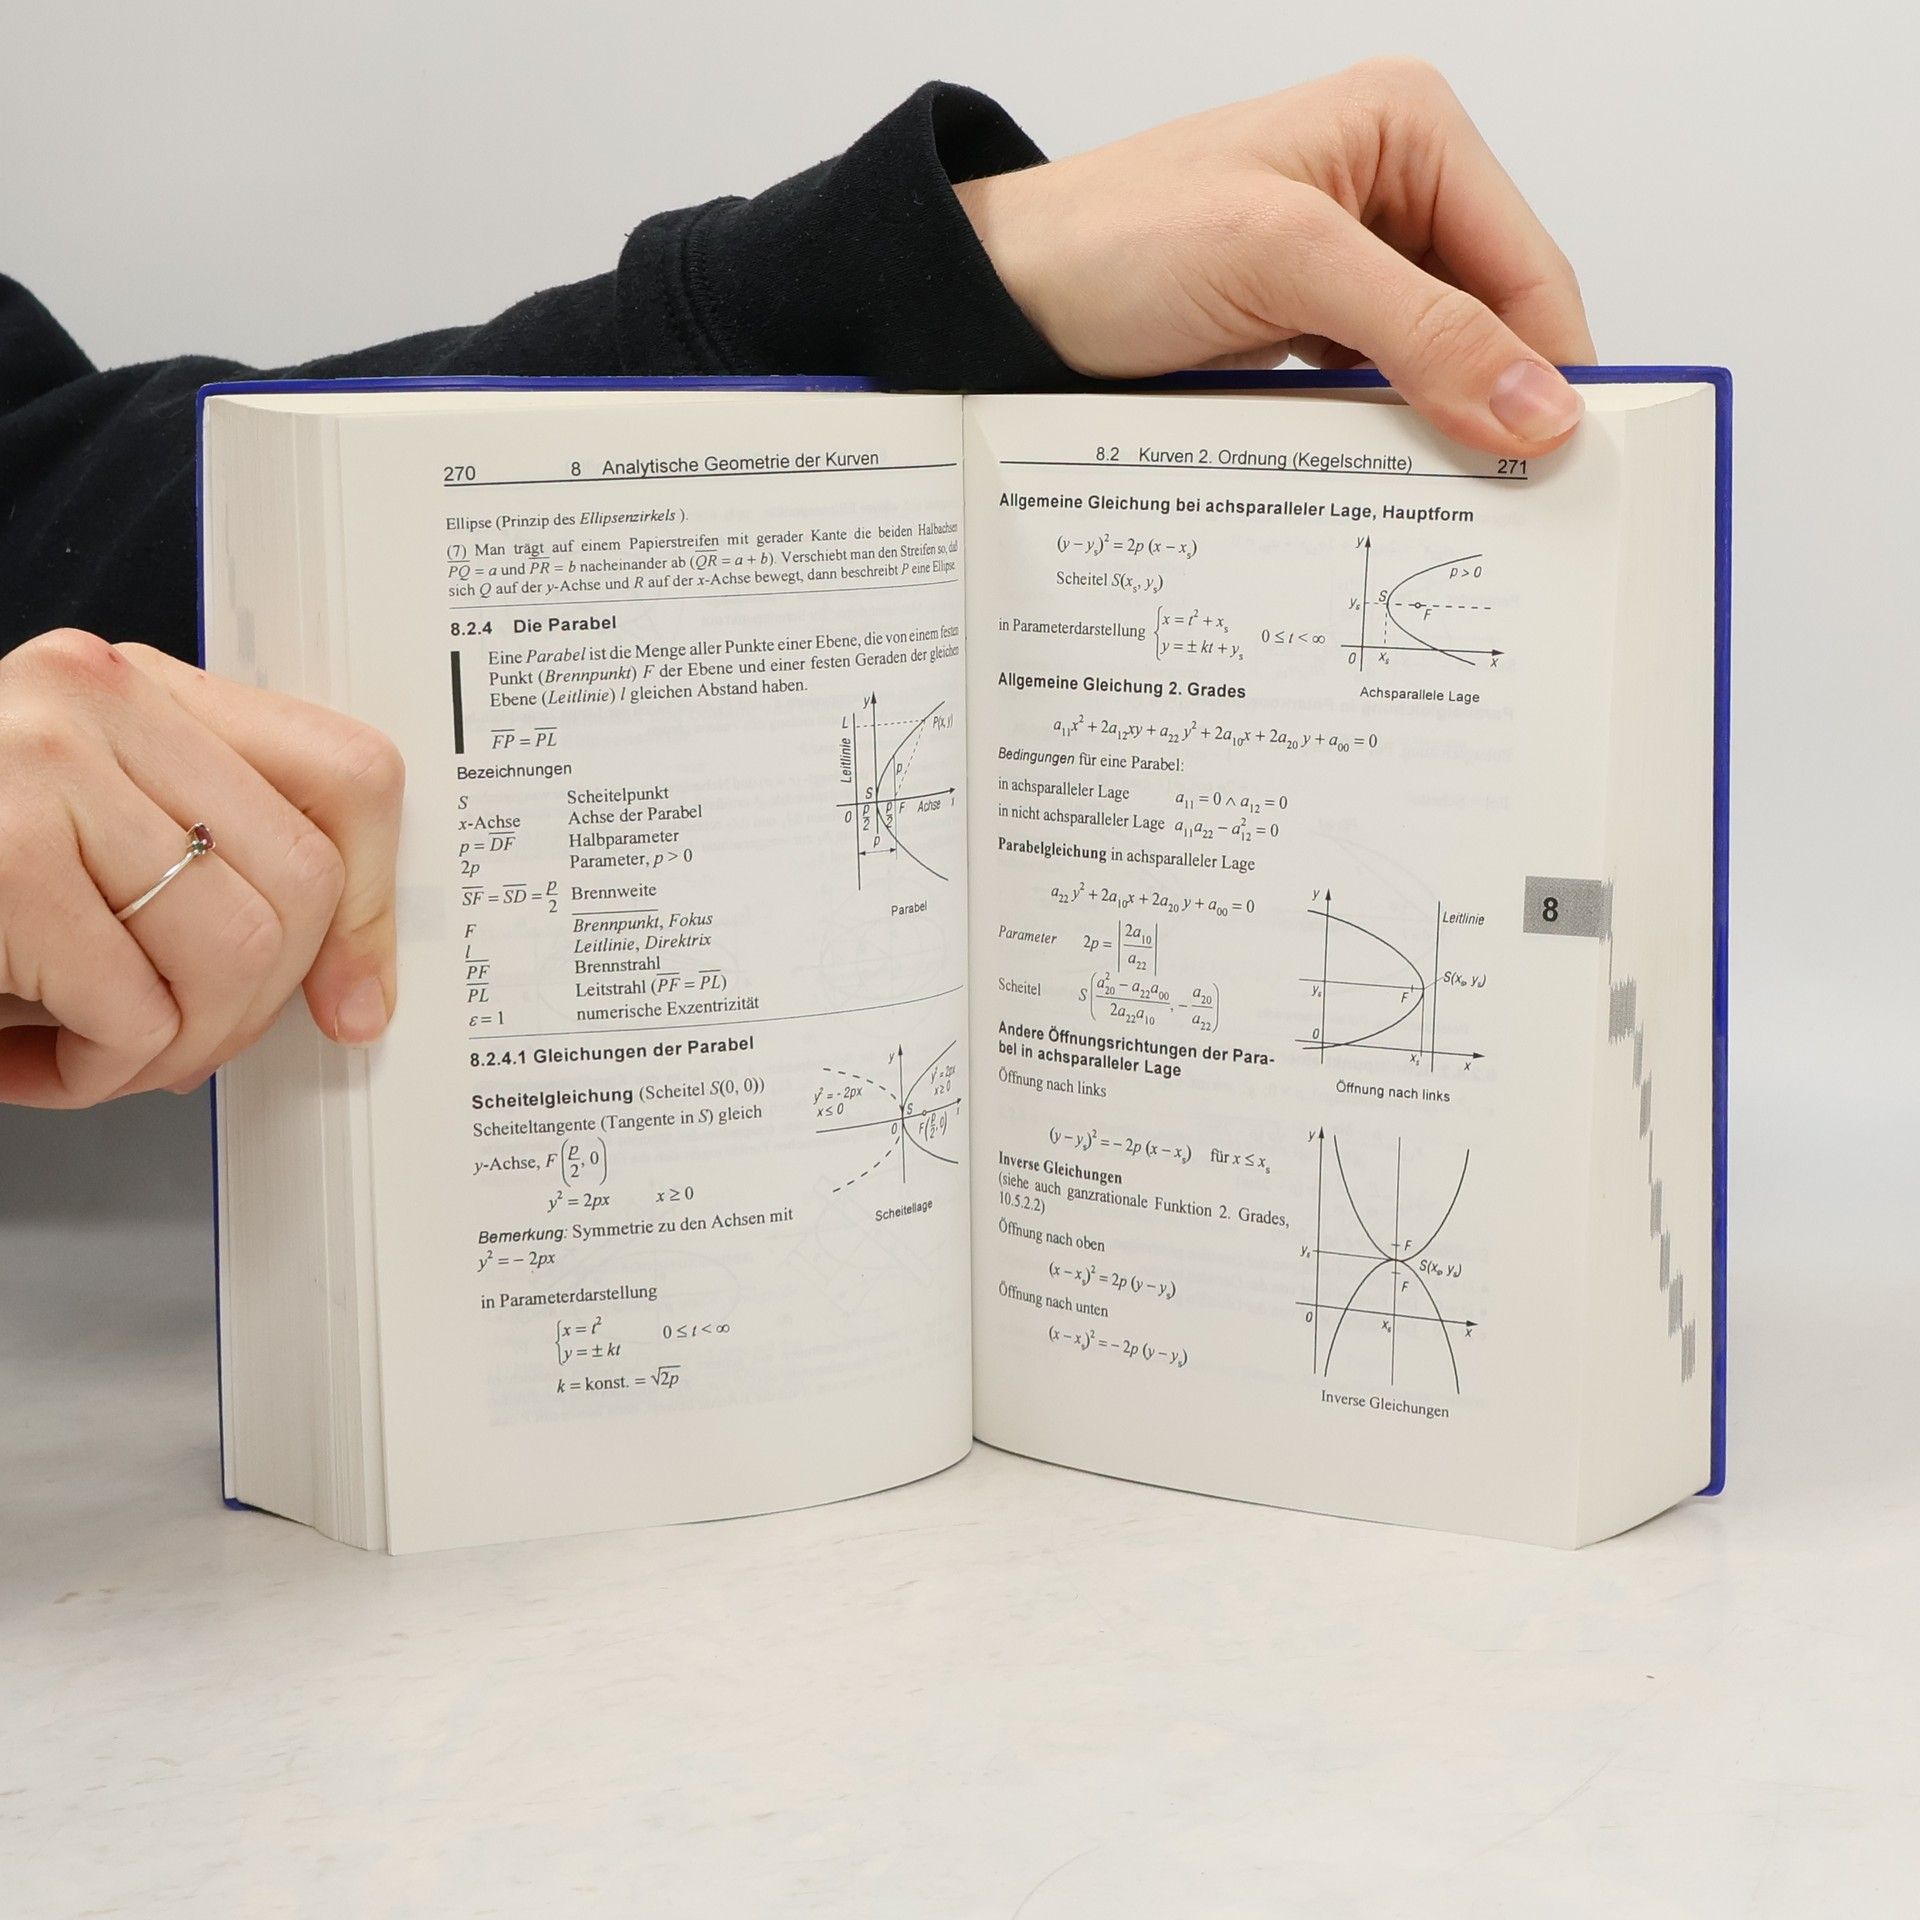 270 8 Analytische Geometrie der Kurven
Ellipse (Prinzip des Ellipsenzirkels ).
(7) Man trägt auf einem Papierstreifen mit gerader Kante die beiden Halbachsen
PQ = a und PR = b nacheinander ab (QR = a + b). Verschiebt man den Streifen so, daß
sich Q auf der y-Achse und R auf der x-Achse bewegt, dann beschreibt P eine Ellipse
8.2.4 Die Parabel
Eine Parabel ist die Menge aller Punkte einer Ebene, die von einem festen
Punkt (Brennpunkt) F der Ebene und einer festen Geraden der gleichen
Ebene (Leitlinie) l gleichen Abstand haben.
F̅P̅ = P̅L̅
Bezeichnungen
S Scheitelpunkt
x-Achse Achse der Parabel
p = D̅F̅ Halbparameter
2p Parameter, p > 0
S̅F̅ = S̅D̅ = p/2 Brennweite
F Brennpunkt, Fokus
l Leitlinie, Direktrix
P̅F̅ Brennstrahl
P̅L̅ Leitstrahl (P̅F̅ = P̅L̅)
ε = 1 numerische Exzentrizität
y
L P(x, y)
Leitlinie
p
S
0 p/2 p/2 F Achse
p
Parabel
8.2.4.1 Gleichungen der Parabel
Scheitelgleichung (Scheitel S(0, 0))
Scheiteltangente (Tangente in S) gleich
y-Achse, F(p/2, 0)
y² = 2px x ≥ 0
Bemerkung: Symmetrie zu den Achsen mit
y² = − 2px
in Parameterdarstellung
x = t²
y = ± kt 0 ≤ t < ∞
k = konst. = √2p
y
y² = -2px
x ≤ 0
y² = 2px
x ≥ 0
S
0 F(p/2, 0)
Scheitellage
8.2 Kurven 2. Ordnung (Kegelschnitte) 271
Allgemeine Gleichung bei achsparalleler Lage, Hauptform
(y − yₛ)² = 2p (x − xₛ)
Scheitel S(xₛ, yₛ)
in Parameterdarstellung x = t² + xₛ
y = ± kt + yₛ 0 ≤ t < ∞
y
p > 0
yₛ S F
0 xₛ x
Achsparallele Lage
Allgemeine Gleichung 2. Grades
a₁₁x² + 2a₁₂xy + a₂₂y² + 2a₁₀x + 2a₂₀y + a₀₀ = 0
Bedingungen für eine Parabel:
in achsparalleler Lage a₁₁ = 0 ∧ a₁₂ = 0
in nicht achsparalleler Lage a₁₁a₂₂ − a₁₂² = 0
Parabelgleichung in achsparalleler Lage
a₂₂y² + 2a₁₀x + 2a₂₀y + a₀₀ = 0
Parameter 2p = |2a₁₀/a₂₂|
Scheitel S((a₂₀² − a₂₂a₀₀)/(2a₂₂a₁₀), −a₂₀/a₂₂)
y
Leitlinie
S(xₛ, yₛ)
yₛ F
0 xₛ x
Öffnung nach links
8
Andere Öffnungsrichtungen der Para-
bel in achsparalleler Lage
Öffnung nach links
(y − yₛ)² = − 2p (x − xₛ) für x ≤ xₛ
Inverse Gleichungen
(siehe auch ganzrationale Funktion 2. Grades,
10.5.2.2)
Öffnung nach oben
(x − xₛ)² = 2p (y − yₛ)
Öffnung nach unten
(x − xₛ)² = − 2p (y − yₛ)
y
F
yₛ S(xₛ, yₛ)
F
0 xₛ x
Inverse Gleichungen